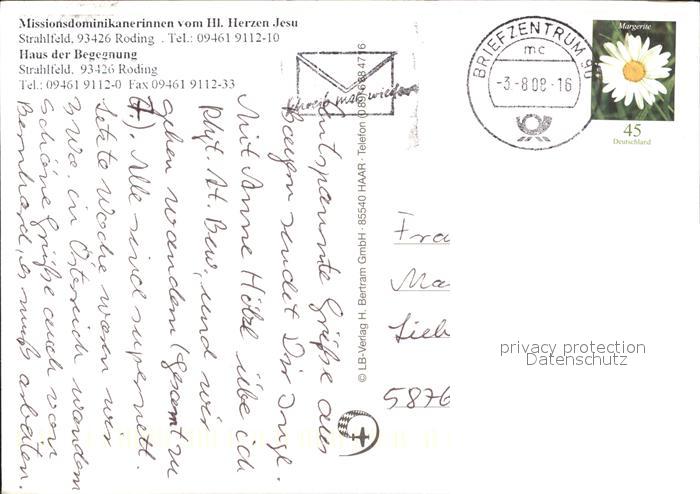 Missionsdominikanerinnen vom Hl. Herzen Jesu
Strahlfeld, 93426 Roding . Tel.: 09461 9112-10
Haus der Begegnung
Strahlfeld, 93426 Roding
Tel.: 09461 9112-0 Fax 09461 9112-33
Entspannte Grüße aus
Bayern sendet Dir Inge.
Mit Anne Hölzl übe ich
Rhyt. At. Bew. und wir
gehen wandern (gesamt zu
7). Alle sind supernett.
Letzte Woche waren wir
in Österreich wandern
Schöne Grüße auch von
Bernhard, er muß arbeiten.
© LB-Verlag H. Bertram GmbH · 85540 HAAR · Telefon (0 89) 6 88 47 16
schreib mal wieder
BRIEFZENTRUM 90
mc
-3.-8.08.-16
Margerite
45
Deutschland
Fra
Ma
Lieb
5876
privacy protection
Datenschutz